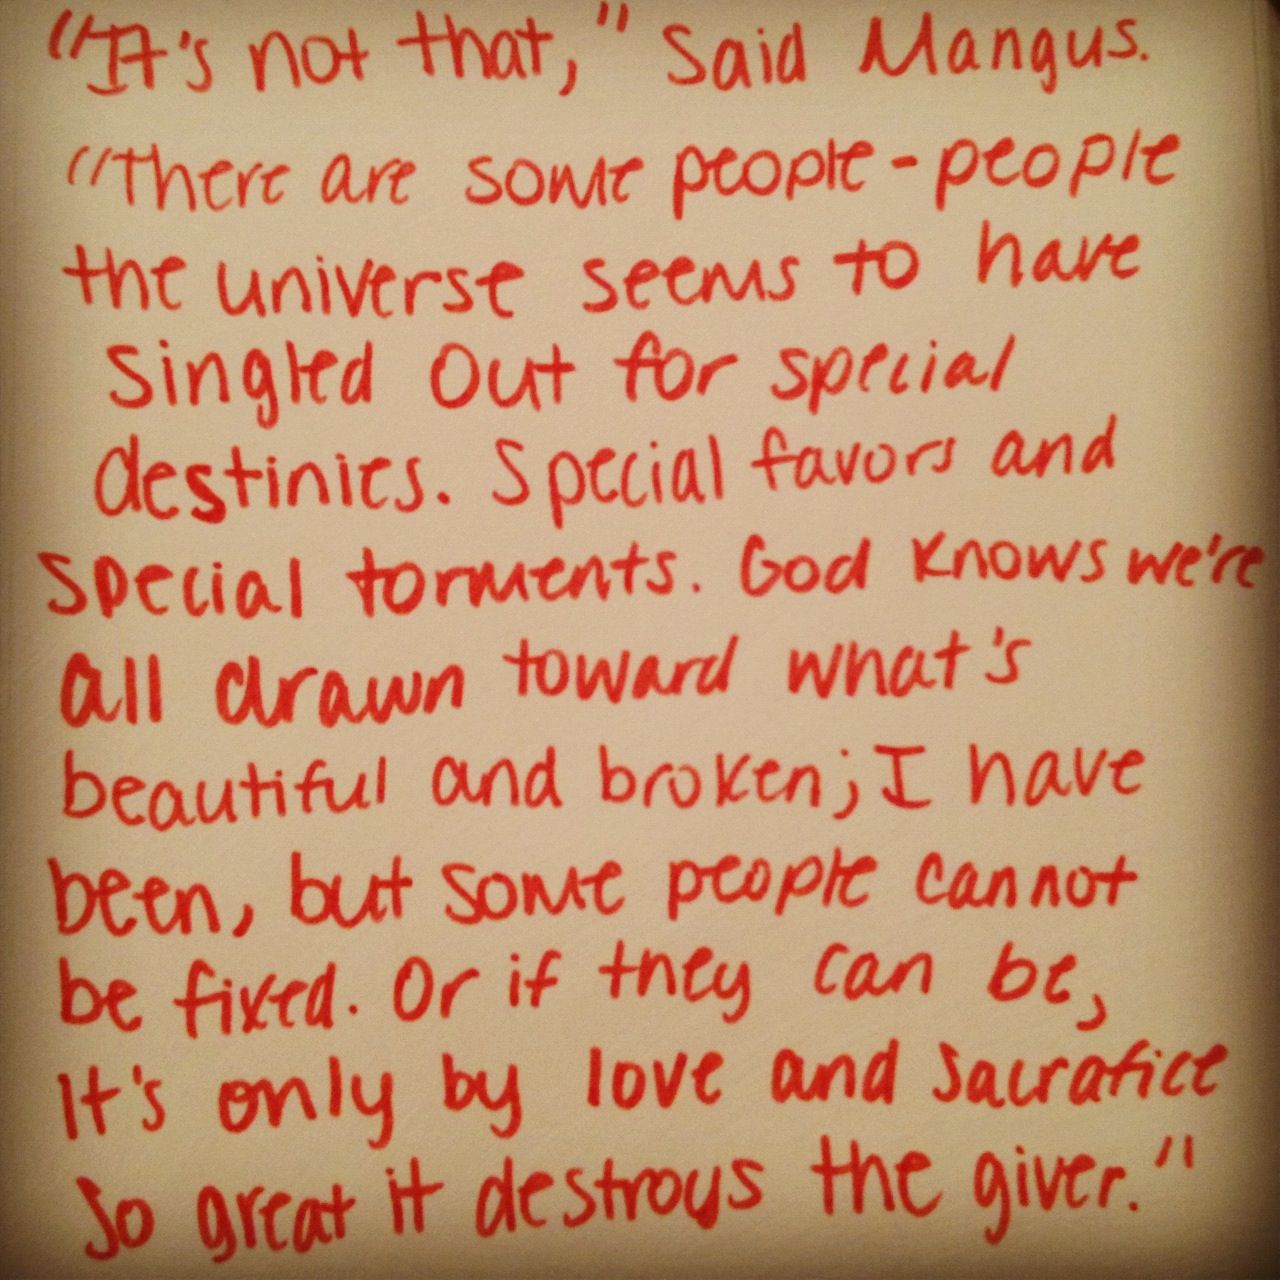 "It's not that," Said Mangus.
"There are some people - people
the universe seems to have
singled out for special
destinies. Special favors and
special torments. God knows we're
all drawn toward what's
beautiful and broken; I have
been, but some people cannot
be fixed. Or if they can be,
It's only by love and sacrafice
So great it destroys the giver."